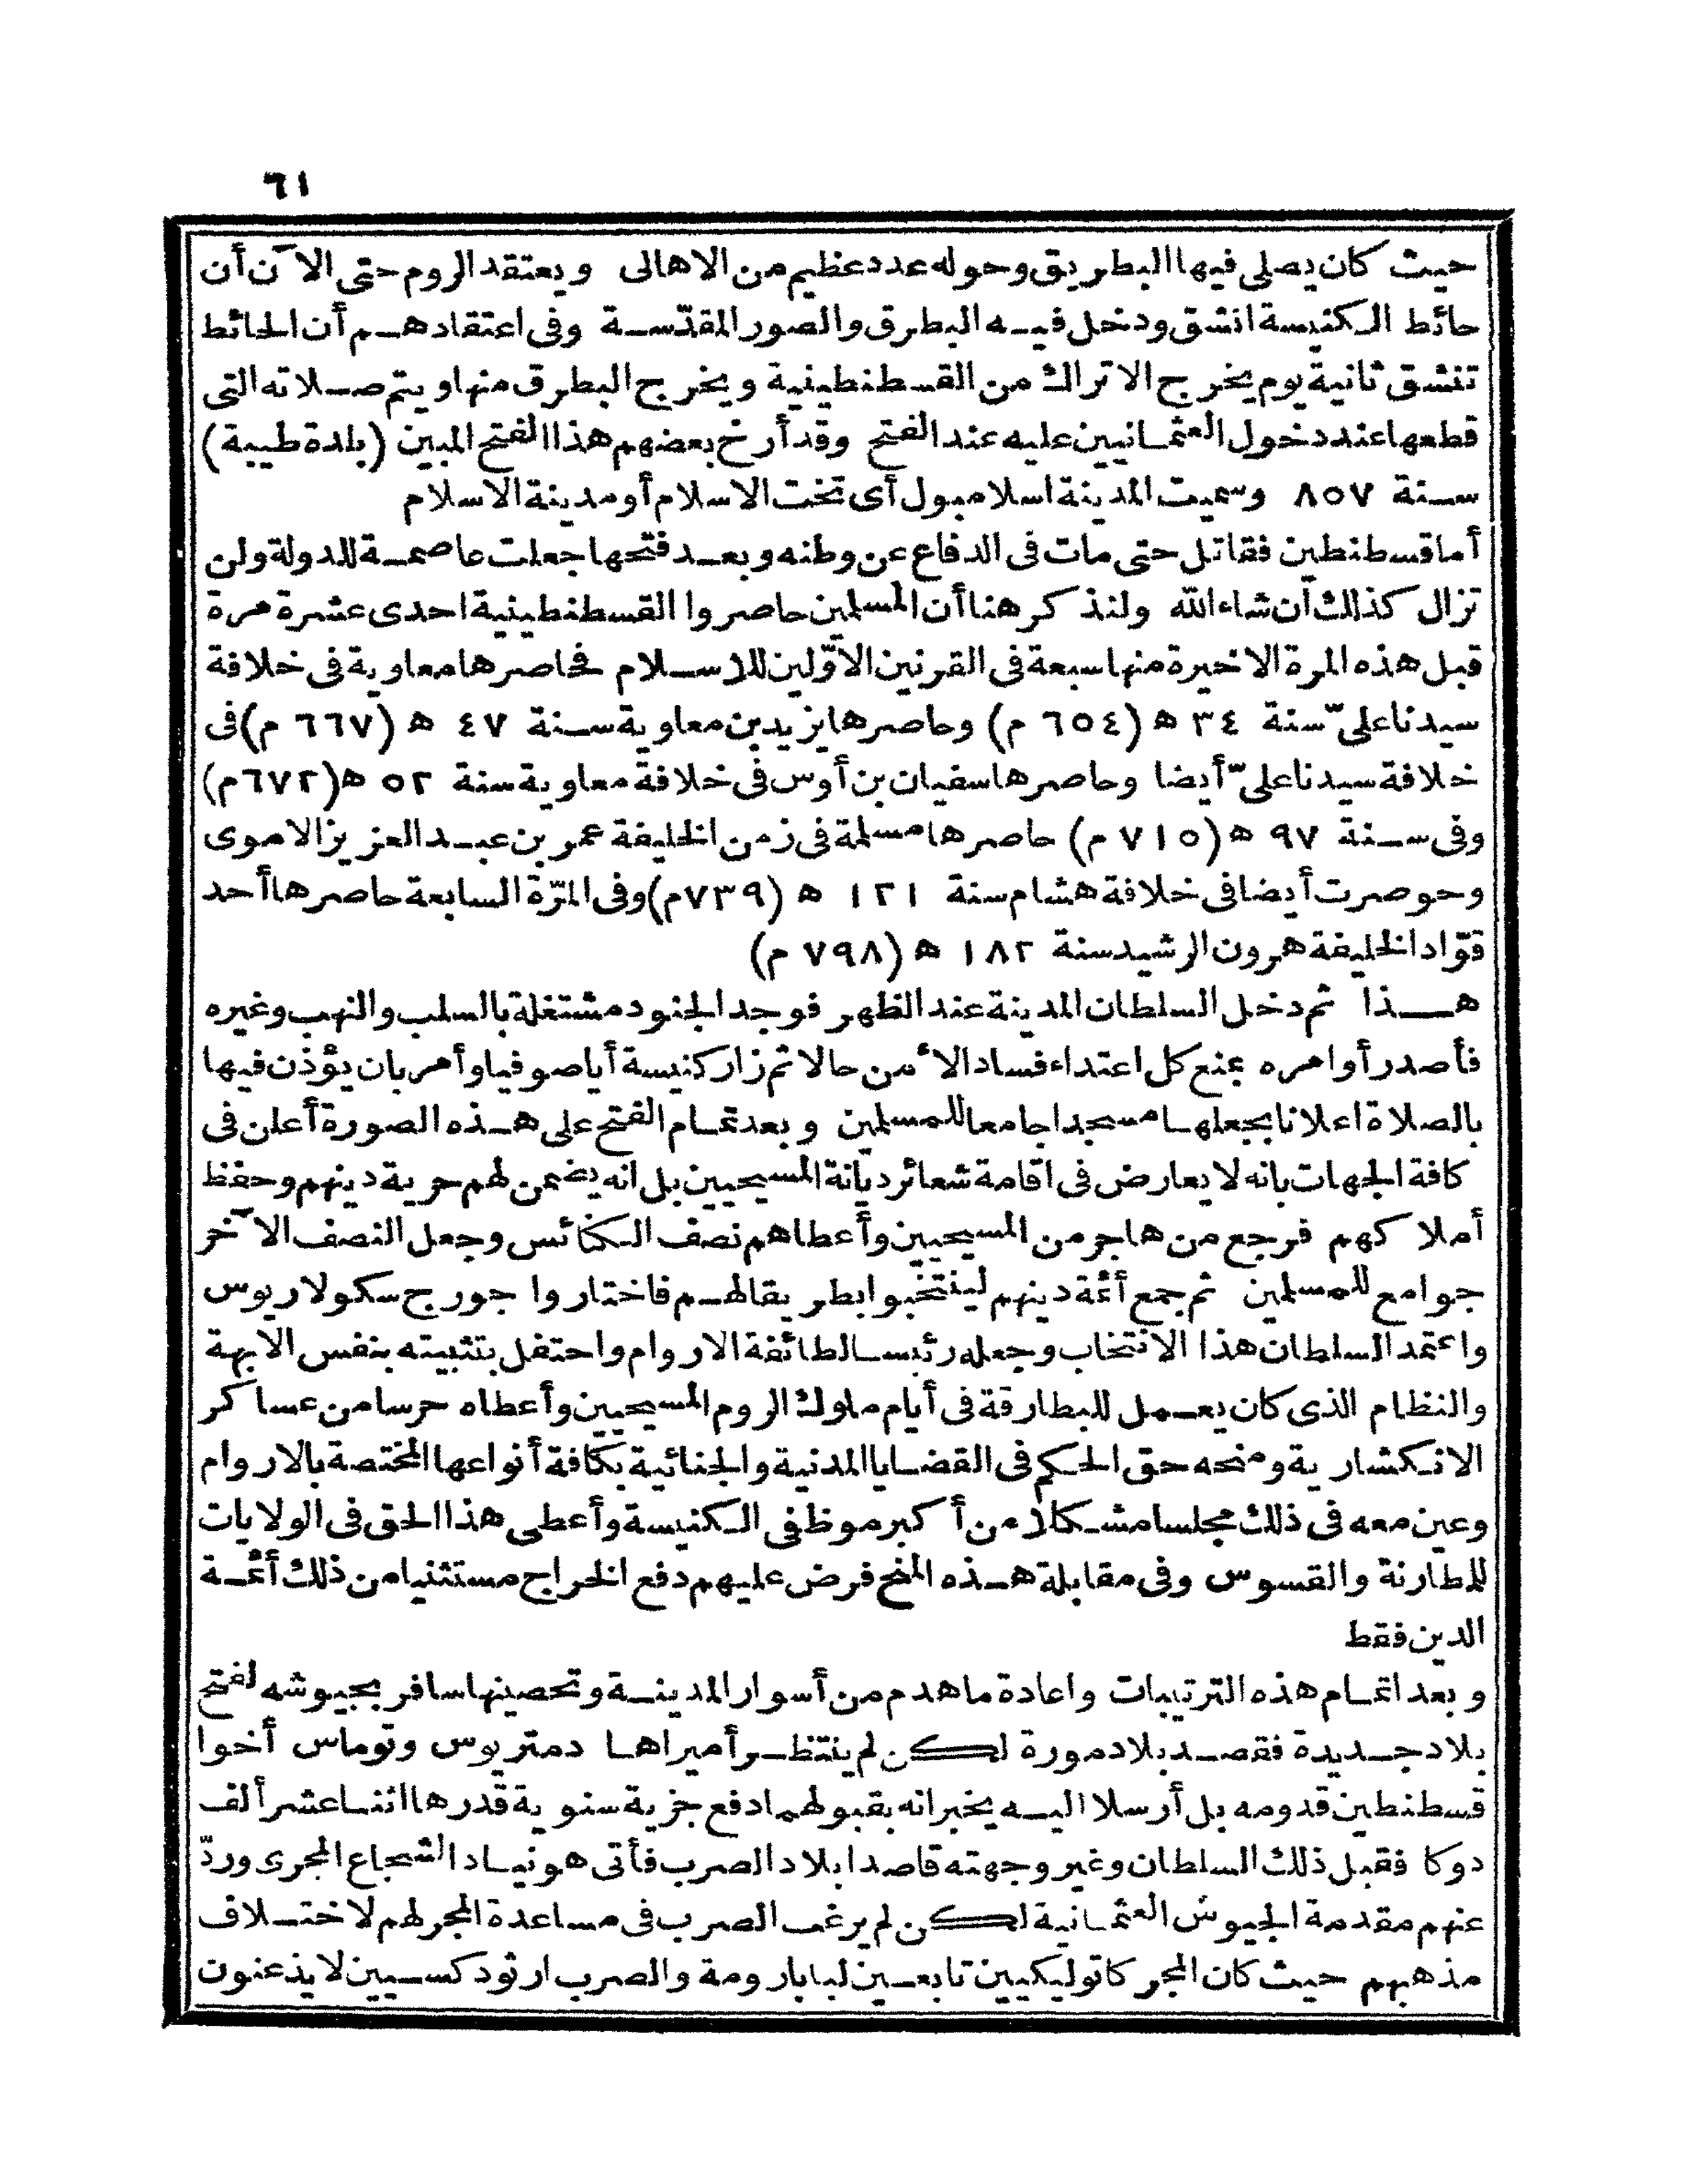 ٦١
حيث كان يصلى فيها البطريق وحوله عدد عظيم من الاهالى ويعتقد الروم حتى الآن أن
حائط الكنيسة انشق ودخل فيه البطرق والصور المقدّسة وفى اعتقادهم أن الحائط
تنشق ثانية يوم يخرج الاتراك من القسطنطينية ويخرج البطرق منها ويتم صلاته التى
قطعها عند دخول العثمانيين عليه عند الفتح وقد أرخ بعضهم هذا الفتح المبين (بلدة طيبة)
سنة ٨٥٧ وسميت المدينة اسلامبول أى تخت الاسلام أو مدينة الاسلام
أما قسطنطين فقاتل حتى مات فى الدفاع عن وطنه وبعد فتحها جعلت عاصمة للدولة ولن
تزال كذلك ان شاء الله ولنذكر هنا أن المسلمين حاصروا القسطنطينية احدى عشرة مرة
قبل هذه المرة الاخيرة منها سبعة فى القرنين الاوّلين للاسلام فحاصرها معاوية فى خلافة
سيدنا علىّ سنة ٣٤ ه (٦٥٤ م) وحاصرها يزيد بن معاوية سنة ٤٧ ه (٦٦٧ م) فى
خلافة سيدنا علىّ أيضا وحاصرها سفيان بن أوس فى خلافة معاوية سنة ٥٢ ه (٦٧٢ م)
وفى سنة ٩٧ ه (٧١٥ م) حاصرها مسلمة فى زمن الخليفة عمر بن عبد العزيز الاموى
وحوصرت أيضا فى خلافة هشام سنة ١٢١ ه (٧٣٩ م) وفى المرّة السابعة حاصرها أحد
قوّاد الخليفة هرون الرشيد سنة ١٨٢ ه (٧٩٨ م)
هذا ثم دخل السلطان المدينة عند الظهر فوجد الجنود مشتغلة بالسلب والنهب وغيره
فأصدر أوامره بمنع كل اعتداء فساد الأمن حالا ثم زار كنيسة أياصوفيا وأمر بان يؤذن فيها
بالصلاة اعلانا بجعلها مسجدا جامعا للمسلمين وبعد تمام الفتح على هذه الصورة أعلن فى
كافة الجهات بانه لا يعارض فى اقامة شعائر ديانة المسيحيين بل انه يضمن لهم حرية دينهم وحفظ
أملاكهم فرجع من هاجر من المسيحيين وأعطاهم نصف الكنائس وجعل النصف الآخر
جوامع للمسلمين ثم جمع أئمة دينهم لينتخبوا بطريقا لهم فاختاروا جورج سكولاريوس
واعتمد السلطان هذا الانتخاب وجعله رئيسا لطائفة الاروام واحتفل بتثبيته بنفس الابهة
والنظام الذى كان يعمل للبطارقة فى أيام ملوك الروم المسيحيين وأعطاه حرسا من عساكر
الانكشارية ومنحه حق الحكم فى القضايا المدنية والجنائية بكافة أنواعها المختصة بالاروام
وعين معه فى ذلك مجلسا مشكلا من أكبر موظفى الكنيسة وأعطى هذا الحق فى الولايات
للمطارنة والقسوس وفى مقابلة هذه المنح فرض عليهم دفع الخراج مستثنيا من ذلك أئمة
الدين فقط
وبعد اتمام هذه الترتيبات واعادة ما هدم من أسوار المدينة وتحصينها سافر بجيوشه لفتح
بلاد جديدة فقصد بلاد مورة لكن لم ينتظر أميراها دمتريوس وتوماس أخوا
قسطنطين قدومه بل أرسلا اليه يخبرانه بقبولهما دفع جزية سنوية قدرها اثنا عشر ألف
دوكا فقبل ذلك السلطان وغير وجهته قاصدا بلاد الصرب فأتى هونياد الشجاع المجرى وردّ
عنهم مقدمة الجيوش العثمانية لكن لم يرغب الصرب فى مساعدة المجر لهم لاختلاف
مذهبهم حيث كان المجر كاتوليكيين تابعين لبابا رومة والصرب ارثودكسيين لا يذعنون